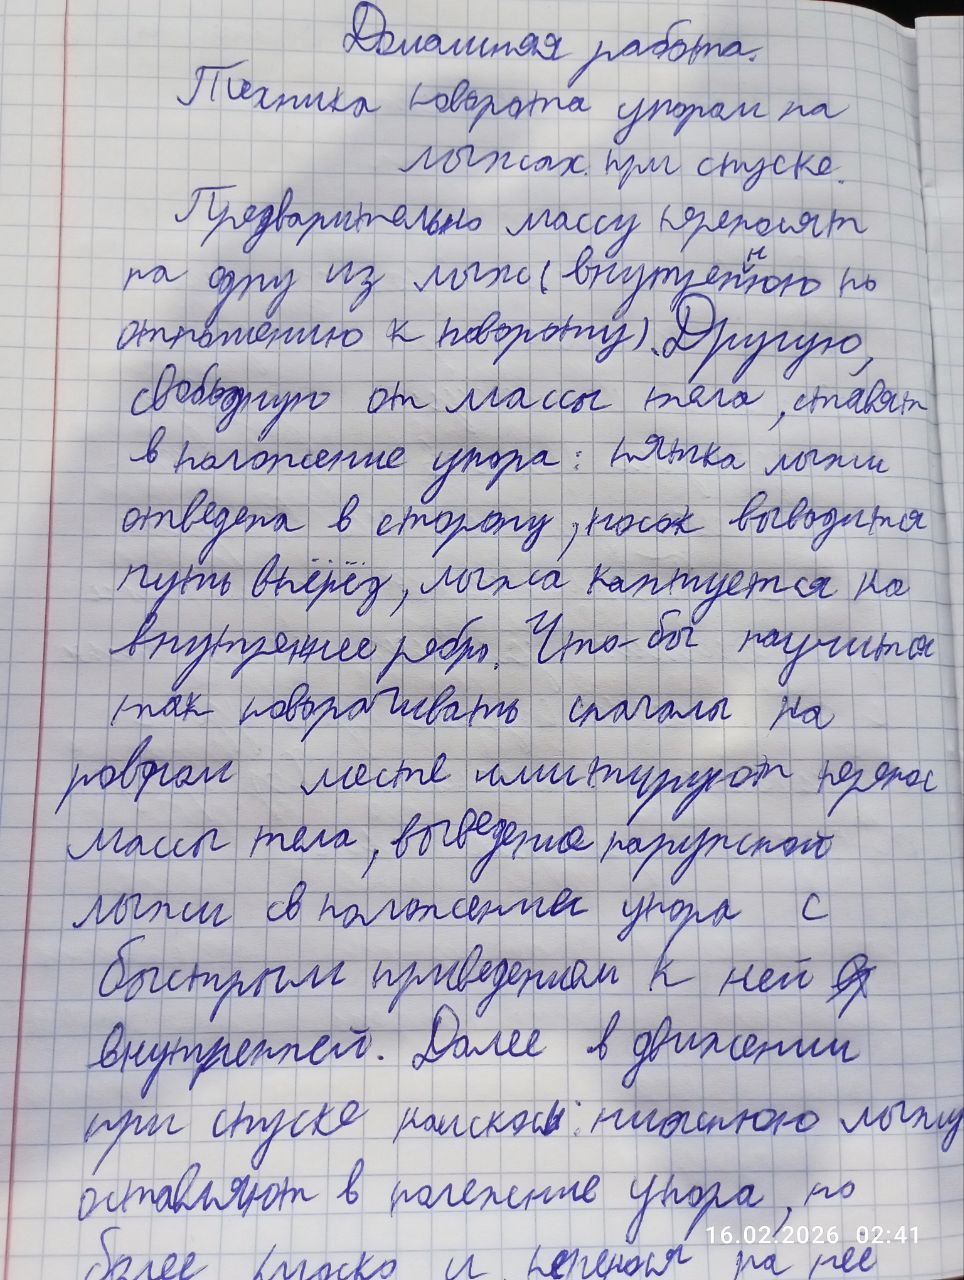 Домашняя работа.
Техника поворота упором на
лыжах при спуске.
Предварительно массу переносят
на одну из лыж (внутреннюю по
отношению к повороту). Другую,
свободную от массы тела, ставят
в положение упора: пятка лыжи
отведена в сторону, носок выводится
чуть вперёд, лыжа кантуется на
внутреннее ребро. Что-бы научится
так поворачивать сначалы на
ровном месте имитируют перенос
массы тела, выведение наружной
лыжи в положение упора с
быстрым приведением к ней
внутренней. Далее в движении
при спуске наискось: нижнюю лыжу
оставляют в положение упора, но
более плоско и перенося на нее
16.02.2026 02:41